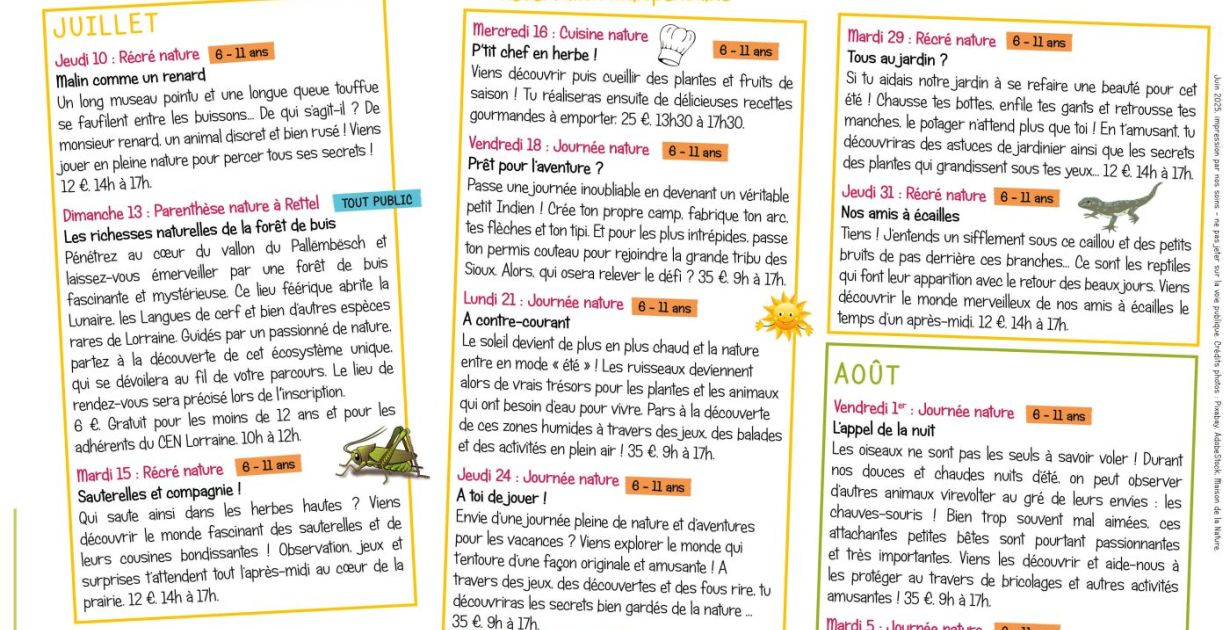 JUILLET
Jeudi 10 : Récré nature 6 - 11 ans
Malin comme un renard
Un long museau pointu et une longue queue touffue
se faufilent entre les buissons... De qui s'agit-il ? De
monsieur renard, un animal discret et bien rusé ! Viens
jouer en pleine nature pour percer tous ses secrets !
12 €. 14h à 17h.
Dimanche 13 : Parenthèse nature à Rettel TOUT PUBLIC
Les richesses naturelles de la forêt de buis
Pénétrez au cœur du vallon du Pallembësch et
laissez-vous émerveiller par une forêt de buis
fascinante et mystérieuse. Ce lieu féérique abrite la
Lunaire, les Langues de cerf et bien d'autres espèces
rares de Lorraine. Guidés par un passionné de nature,
partez à la découverte de cet écosystème unique,
qui se dévoilera au fil de votre parcours. Le lieu de
rendez-vous sera précisé lors de l'inscription.
6 €. Gratuit pour les moins de 12 ans et pour les
adhérents du CEN Lorraine. 10h à 12h.
Mardi 15 : Récré nature 6 - 11 ans
Sauterelles et compagnie !
Qui saute ainsi dans les herbes hautes ? Viens
découvrir le monde fascinant des sauterelles et de
leurs cousines bondissantes ! Observation, jeux et
surprises t'attendent tout l'après-midi au cœur de la
prairie. 12 €. 14h à 17h.
Mercredi 16 : Cuisine nature 6 - 11 ans
P'tit chef en herbe !
Viens découvrir puis cueillir des plantes et fruits de
saison ! Tu réaliseras ensuite de délicieuses recettes
gourmandes à emporter. 25 €. 13h30 à 17h30.
Vendredi 18 : Journée nature 6 - 11 ans
Prêt pour l'aventure ?
Passe une journée inoubliable en devenant un véritable
petit Indien ! Crée ton propre camp, fabrique ton arc,
tes flèches et ton tipi. Et pour les plus intrépides, passe
ton permis couteau pour rejoindre la grande tribu des
Sioux. Alors, qui osera relever le défi ? 35 €. 9h à 17h.
Lundi 21 : Journée nature 6 - 11 ans
A contre-courant
Le soleil devient de plus en plus chaud et la nature
entre en mode « été » ! Les ruisseaux deviennent
alors de vrais trésors pour les plantes et les animaux
qui ont besoin d'eau pour vivre. Pars à la découverte
de ces zones humides à travers des jeux, des balades
et des activités en plein air ! 35 €. 9h à 17h.
Jeudi 24 : Journée nature 6 - 11 ans
A toi de jouer !
Envie d'une journée pleine de nature et d'aventures
pour les vacances ? Viens explorer le monde qui
t'entoure d'une façon originale et amusante ! A
travers des jeux, des découvertes et des fous rire, tu
découvriras les secrets bien gardés de la nature ...
35 €. 9h à 17h.
Mardi 29 : Récré nature 6 - 11 ans
Tous au jardin ?
Si tu aidais notre jardin à se refaire une beauté pour cet
été ! Chausse tes bottes, enfile tes gants et retrousse tes
manches, le potager n'attend plus que toi ! En t'amusant, tu
découvriras des astuces de jardinier ainsi que les secrets
des plantes qui grandissent sous tes yeux... 12 €. 14h à 17h.
Jeudi 31 : Récré nature 6 - 11 ans
Nos amis à écailles
Tiens ! J'entends un sifflement sous ce caillou et des petits
bruits de pas derrière ces branches... Ce sont les reptiles
qui font leur apparition avec le retour des beaux jours. Viens
découvrir le monde merveilleux de nos amis à écailles le
temps d'un après-midi. 12 €. 14h à 17h.
AOÛT
Vendredi 1er : Journée nature 6 - 11 ans
L'appel de la nuit
Les oiseaux ne sont pas les seuls à savoir voler ! Durant
nos douces et chaudes nuits d'été, on peut observer
d'autres animaux virevolter au gré de leurs envies : les
chauves-souris ! Bien trop souvent mal aimées, ces
attachantes petites bêtes sont pourtant passionnantes
et très importantes. Viens les découvrir et aide-nous à
les protéger au travers de bricolages et autres activités
amusantes ! 35 €. 9h à 17h.
Mardi 5 : Journée nature
Juin 2025, impression par nos soins - ne pas jeter sur la voie publique. Crédits photos : Pixabay, AdobeStock, Maison de la Nature.